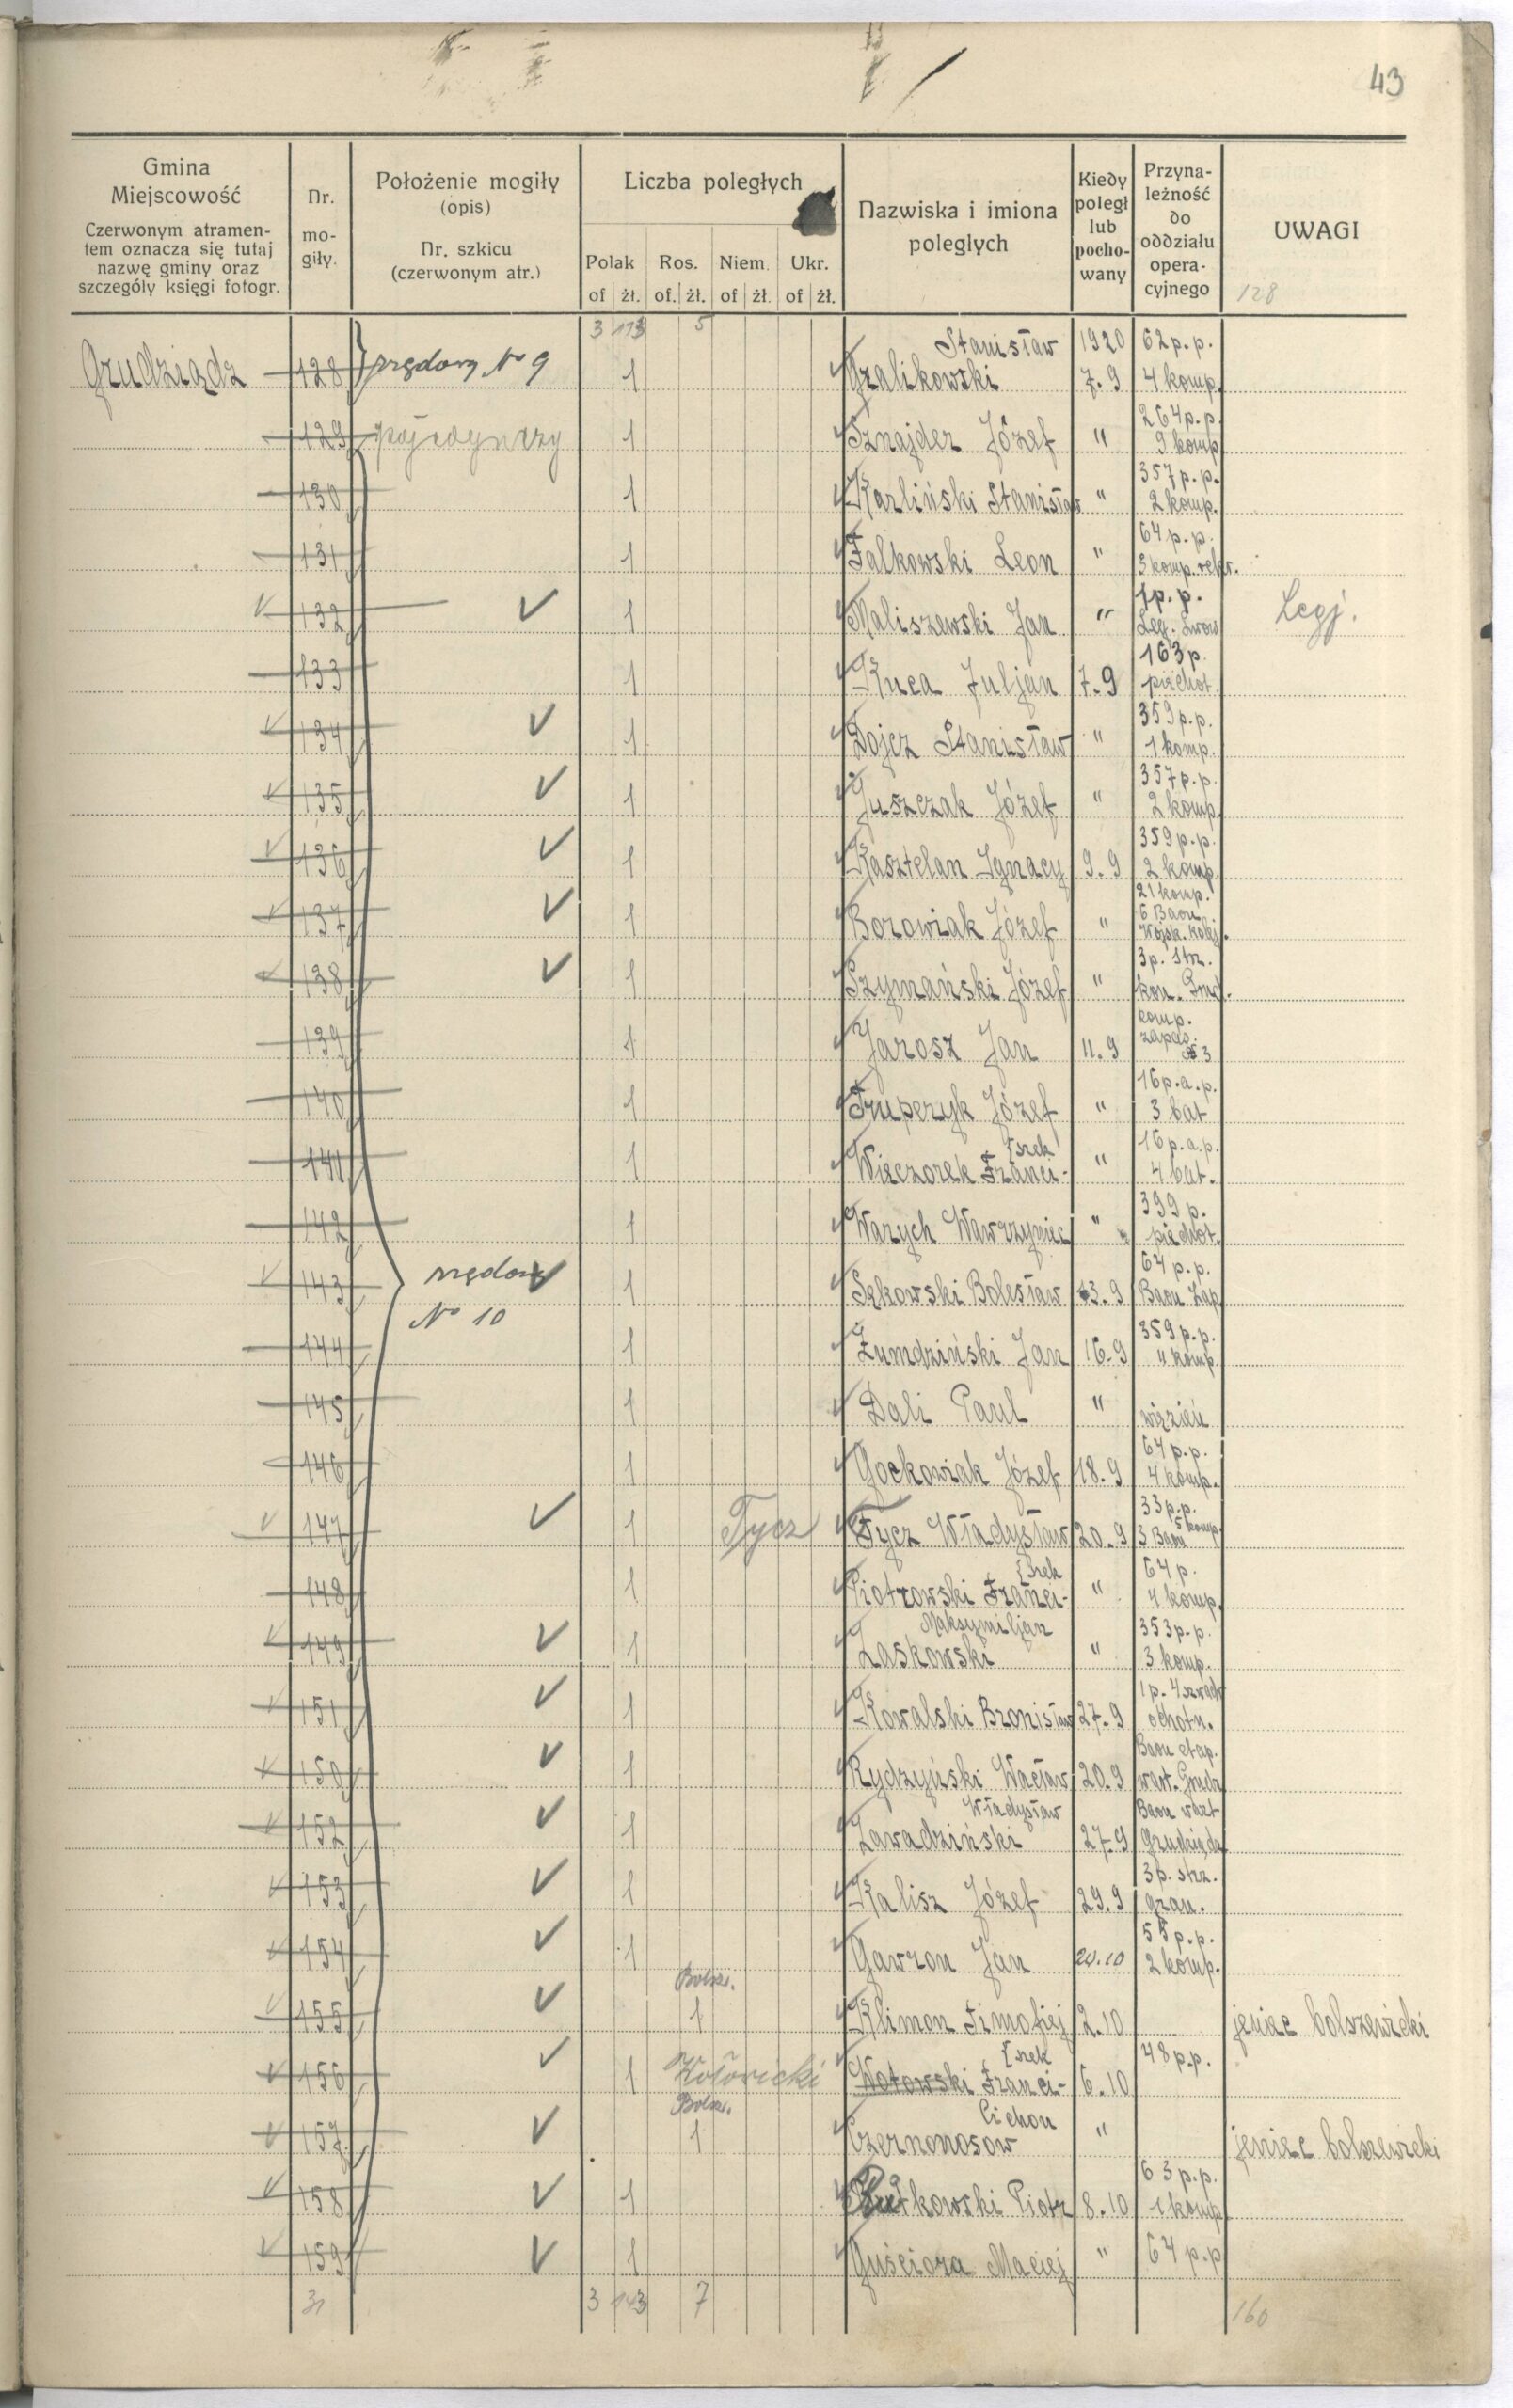 43
Gmina
Miejscowość
Czerwonym atramen-
tem oznacza się tutaj
nazwę gminy oraz
szczegóły księgi fotogr.
Nr.
mo-
giły.
Położenie mogiły
(opis)
Nr. szkicu
(czerwonym atr.)
Liczba poległych
Polak Ros. Niem. Ukr.
of żł. of. żł. of żł. of żł.
Nazwiska i imiona
poległych
Kiedy
poległ
lub
pocho-
wany
Przyna-
leżność
do
oddziału
opera-
cyjnego
UWAGI
128
3 113 5
Stanisław 1920 62 p.p.
Grudziądz 128 rzędowy No 9 1 Gralikowski 7.9 4 komp.
264 p.p.
129 pojedynczy 1 Sznajder Józef " 9 komp
357 p.p.
130 1 Karliński Stanisław " 2 komp.
64 p.p.
131 1 Falkowski Leon " 3 komp. rekr.
1 p.p.
132 1 Maliszewski Jan " Leg. Lwow Legj.
163 p.
133 1 Kuca Juljan 7.9 piechot.
359 p.p.
134 1 Dojcz Stanisław " 1 komp.
357 p.p.
135 1 Juszczak Józef " 2 komp.
359 p.p.
136 1 Kasztelan Ignacy 9.9 2 komp.
21 komp.
6 Baon
137 1 Borowiak Józef " Wojsk. Kolej.
3 p. Strz.
138 1 Szymański Józef " kon. Grud.
komp.
zapas.
139 1 Jarosz Jan 11.9 3
16 p.a.p.
140 1 Trupczyk Józef " 3 bat
szek 16 p.a.p.
141 1 Wieczorek Franci- " 4 bat.
399 p.
142 1 Warych Wawrzyniec " piechot.
64 p.p.
143 rzędowy 1 Sękowski Bolesław 13.9 Baon Zap
No 10
359 p.p.
144 1 Zumdziński Jan 16.9 11 komp.
145 1 Dali Paul " więzień
64 p.p.
146 1 Gockowiak Józef 18.9 4 komp.
33 p.p.
5 komp
147 1 Tycz Tycz Władysław 20.9 3 Baon
szek 64 p.
148 1 Piotrowski Franci- " 4 komp.
Maksymiljan 353 p.p.
149 1 Laskowski " 3 komp.
1 p. 4 szwadr
151 1 Kowalski Bronisław 27.9 ochotn.
Baon etap.
150 1 Rydzyński Wacław 20.9 wart. Grudz
Władysław Baon wart
152 1 Zawadziński 27.9 Grudziądz
3 p. strz.
153 1 Kalisz Józef 29.9 gran.
55 p.p.
154 1 Gawron Jan 20.10 2 komp.
Bolsz.
155 1 Klimon Timofiej 2.10 jeniec bolszewicki
szek 48 p.p.
156 1 Wotowski Franci- 6.10
Bolsz. Cichon
157 1 Czernonosow " jeniec bolszewicki
63 p.p.
158 1 Rutkowski Piotr 8.10 1 komp
159 1 Guściora Maciej " 64 p.p
31 3 143 7 160